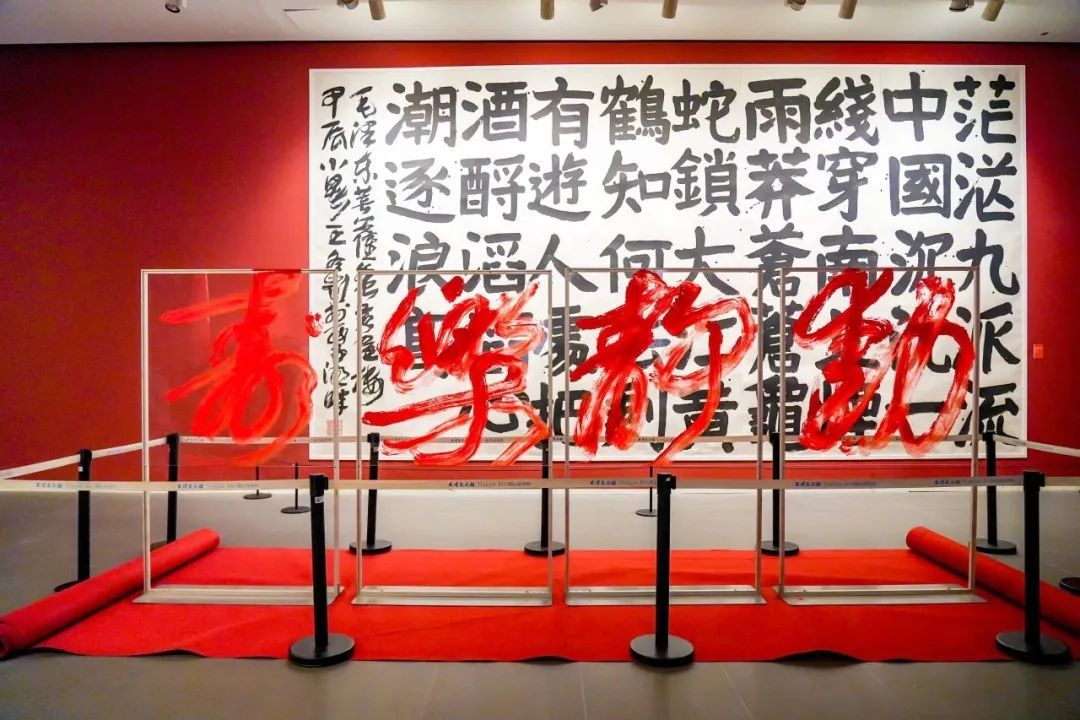 茫茫九派流
中國沉沉一
綫穿南北煙
雨莽蒼蒼龜
蛇鎖大江黃
鶴知何去剩
有遊人處把
酒酹滔滔心
潮逐浪高
毛澤東菩薩蠻
甲辰小暑
動靜樂壽
天津美术馆 Tianjin Art Museum